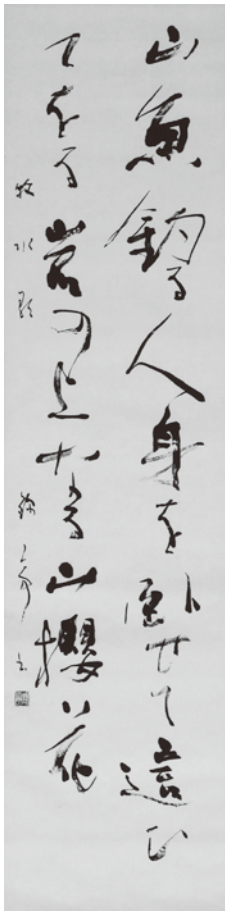 山魚釣る人身を臥せて這ひ
てをる岩の上なる山櫻花
牧水歌